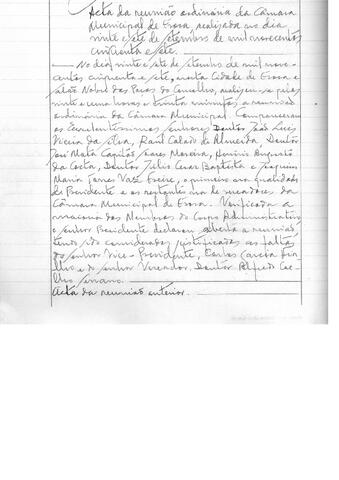 Acta da reunião ordinária da Câmara
Municipal de Evora, realizada no dia
vinte e sete de setembro de mil novecentos
cinquenta e sete.
No dia vinte e sete de setembro de mil nove-
centos cinquenta e sete, nesta Cidade de Evora e
salão Nobre dos Paços do Concelho, realizou-se pelas
vinte e uma horas e trinta minutos a reunião
ordinária da Câmara Municipal. Compareceram
os Excelentissimos senhores Doutor João Luis
Vieira da Silva, Raúl Calado de Almeida, Doutor
José Mata Capitão Soares Moreira, Henrique Augusto
da Costa, Doutor Júlio Cesar Baptista e Joaquim
Maria Torres Vaz Freire, o primeiro na qualidade
de Presidente e os restantes na de vereadores da
Câmara Municipal de Evora. Verificada a
maioria dos Membros do Corpo Administrativo
o senhor Presidente declarou aberta a reunião,
tendo sido consideradas justificadas as faltas
do senhor Vice-Presidente, Carlos
e do senhor Vereador, Doutor Alfredo Coe-
lho
Acta da reunião anterior.